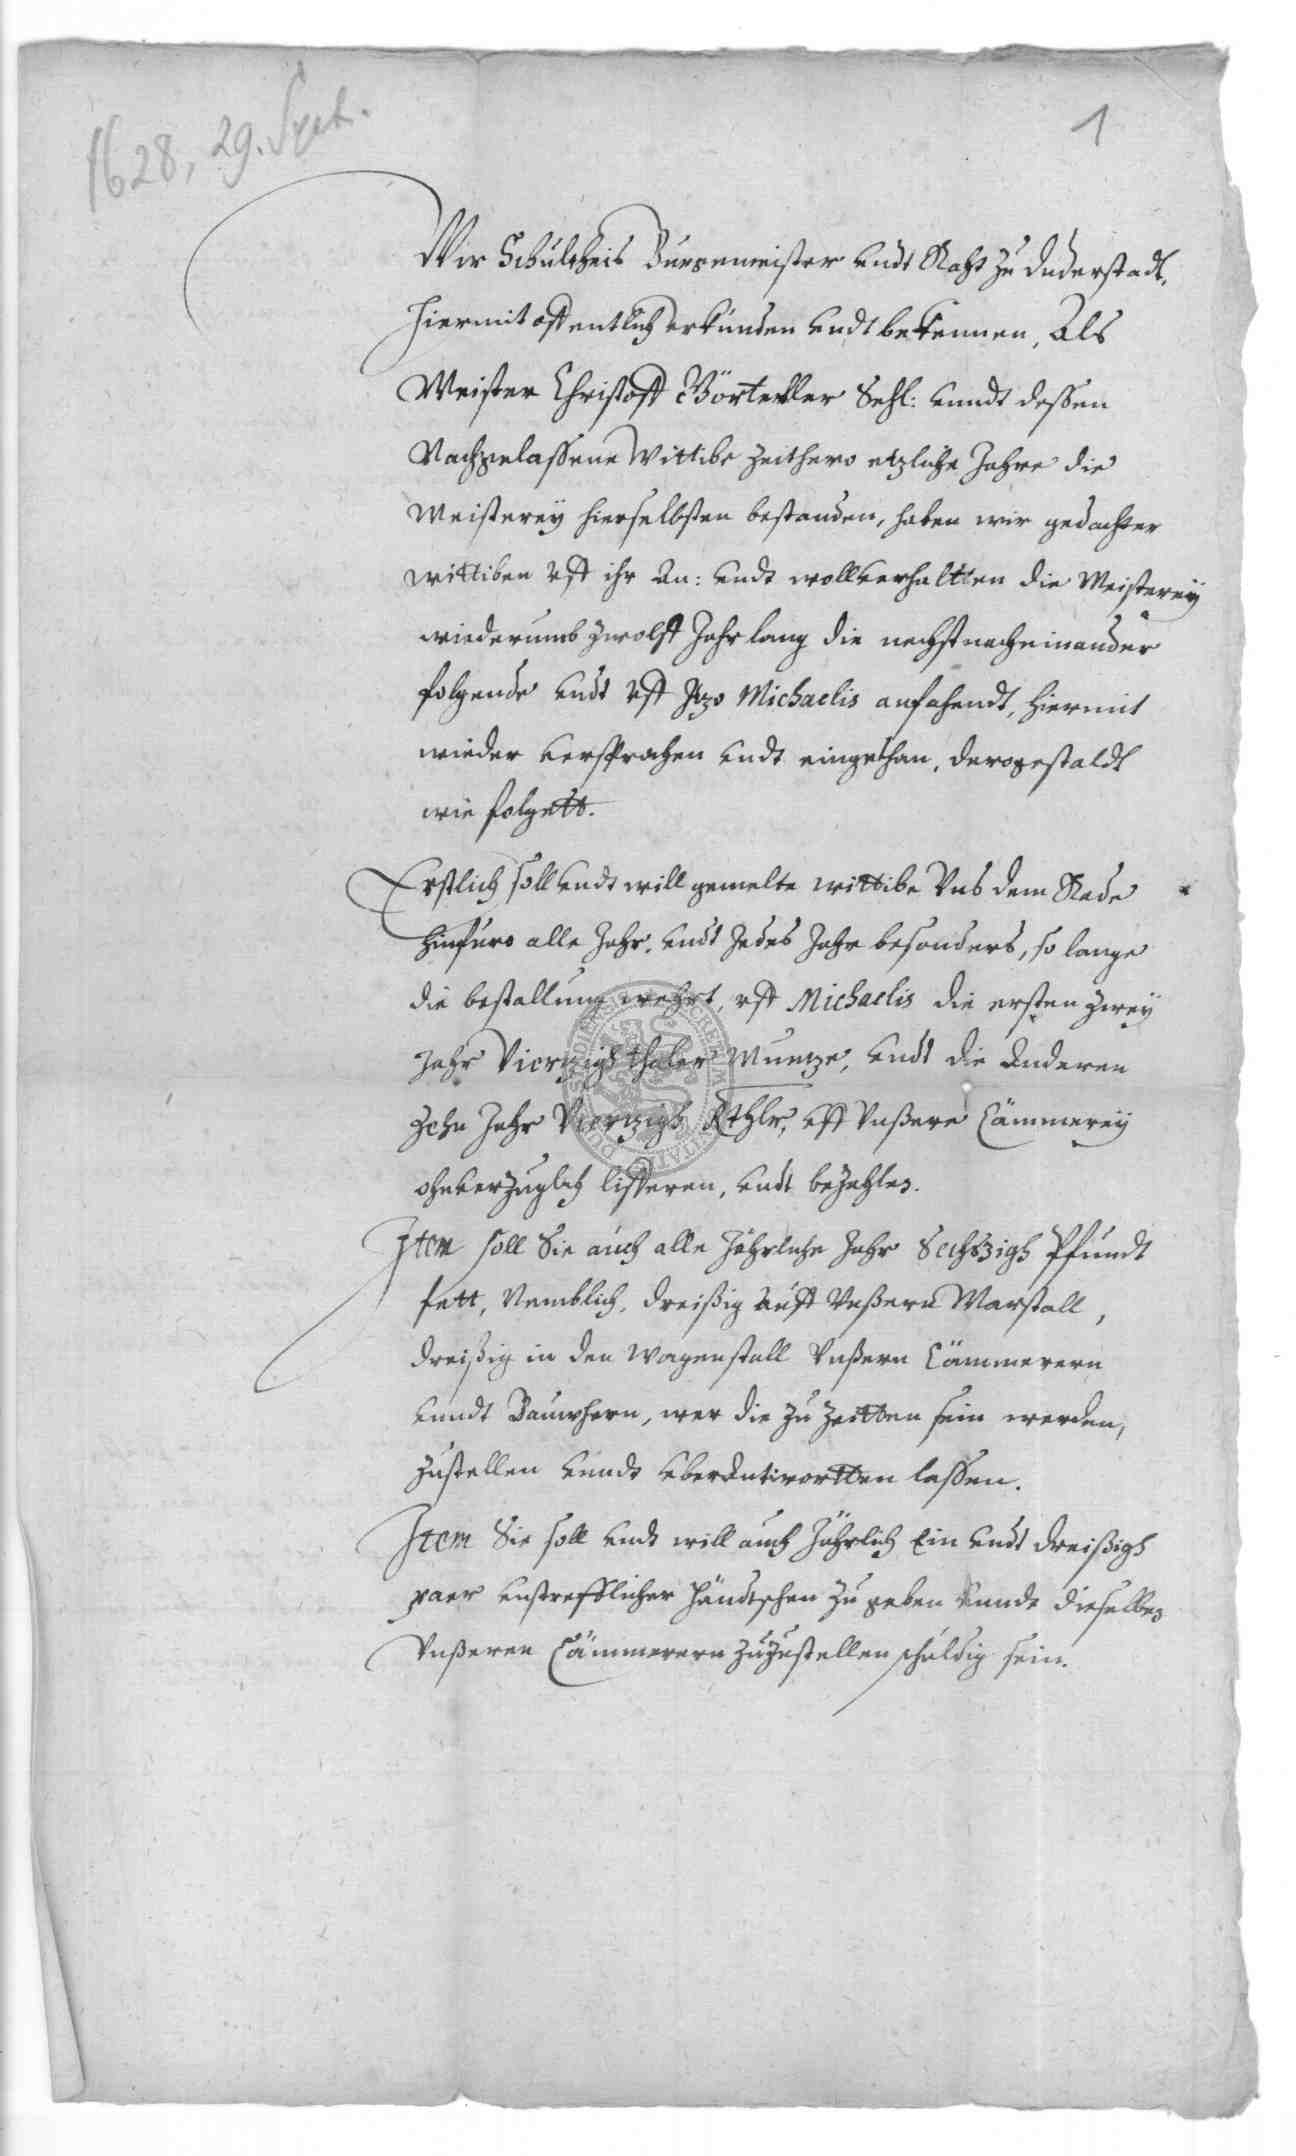 1628, 29. Sept.
1
Wir Schultheis Burgemeister undt Raht zu Duderstadt,
hiermit offentlich erkunden undt bekennen, Als
Meister Christoff Börteller Sehl: unndt dessen
Nachgelassene Wittibe zeithero etzliche Jahre die
Meisterey hierselbsten bestanden, haben wir gedachter
wittiben uff ihr An: undt wollverhaltten die Meisterey
wiederumb zwolff Jahr lang die nechstnacheinander
folgende undt uff Jtzo Michaelis anfahendt, hiermit
wieder versprochen undt eingethan, derogestaldt
wie folgett.
Erstlich soll undt will gemelte wittibe Uns dem Rade
hinfuro alle Jahr, undt Jedes Jahr besonders, so lange
die bestallung wehrt, uff Michaelis die ersten zwey
Jahr Viertzigh thaler Muntze, undt die Anderen
Zehn Jahr Viertzigh Rthlr, uff Unßere Cämmerey
ohnverzuglich lifferen, undt bezahlen.
Item soll Sie auch alle Jährliche Jahr Sechszigh Pfundt
fett, Nemblich, dreißig auff Unßern Marstall,
dreißig in den wagenstall Unßern Cämmerern
unndt Bauwhern, wer die zu Zeitten sein werden,
zustellen unndt uberantwortten lassen.
Item Sie soll undt will auch Jährlich Ein undt dreißigh
paer unstrefflicher Händschen zu geben unnde dieselben
Unßeren Cämmerern zuzustellen schuldig sein.